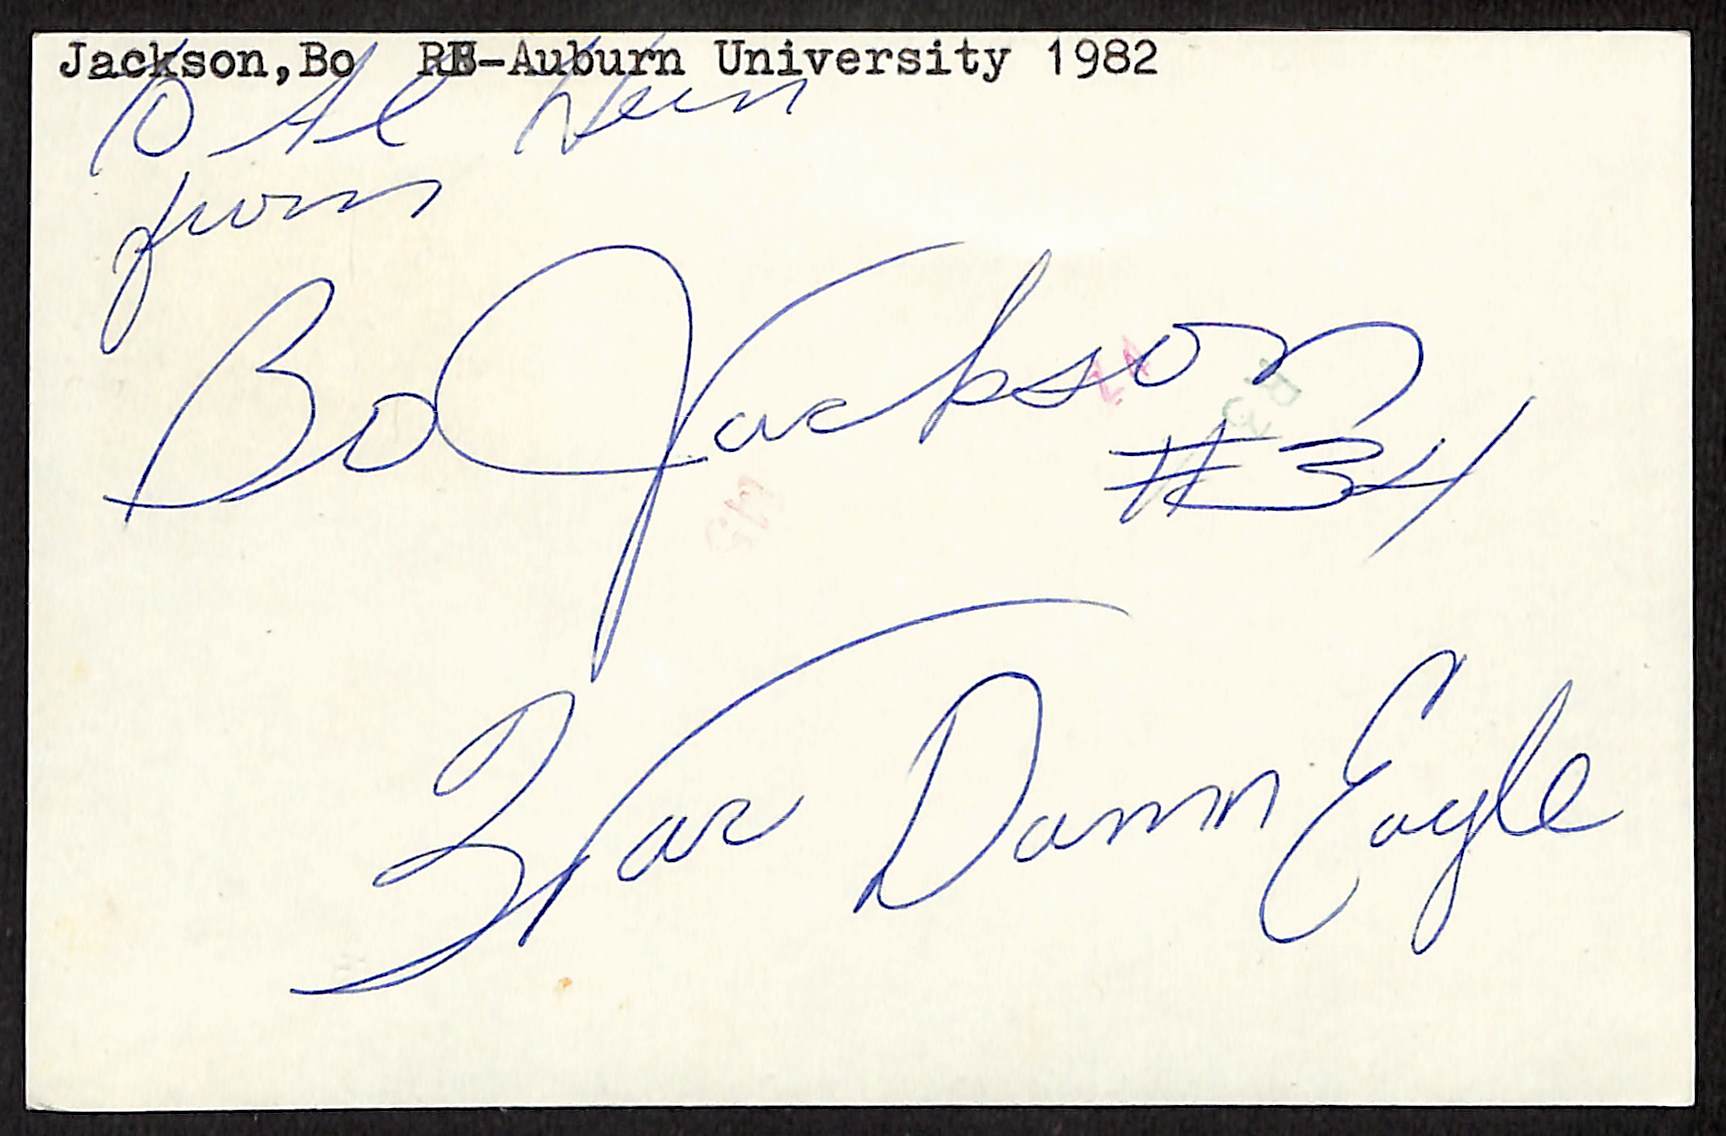 Jackson,Bo RB-Auburn University 1982
To Al Hein
from
Bo Jackson
#34
War Damn Eagle